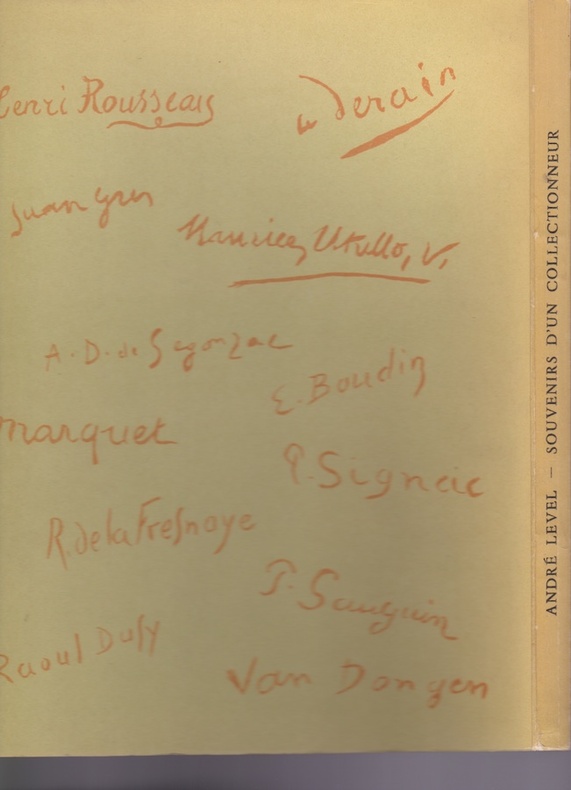 Henri Rousseau
a derain
Juan Gris
Maurice, Utrillo, V,
A. D. de Segonzac
E. Boudin
marquet
P. Signac
R. de la Fresnaye
P. Gauguin
Raoul Dufy
Van Dongen
ANDRÉ LEVEL — SOUVENIRS D'UN COLLECTIONNEUR